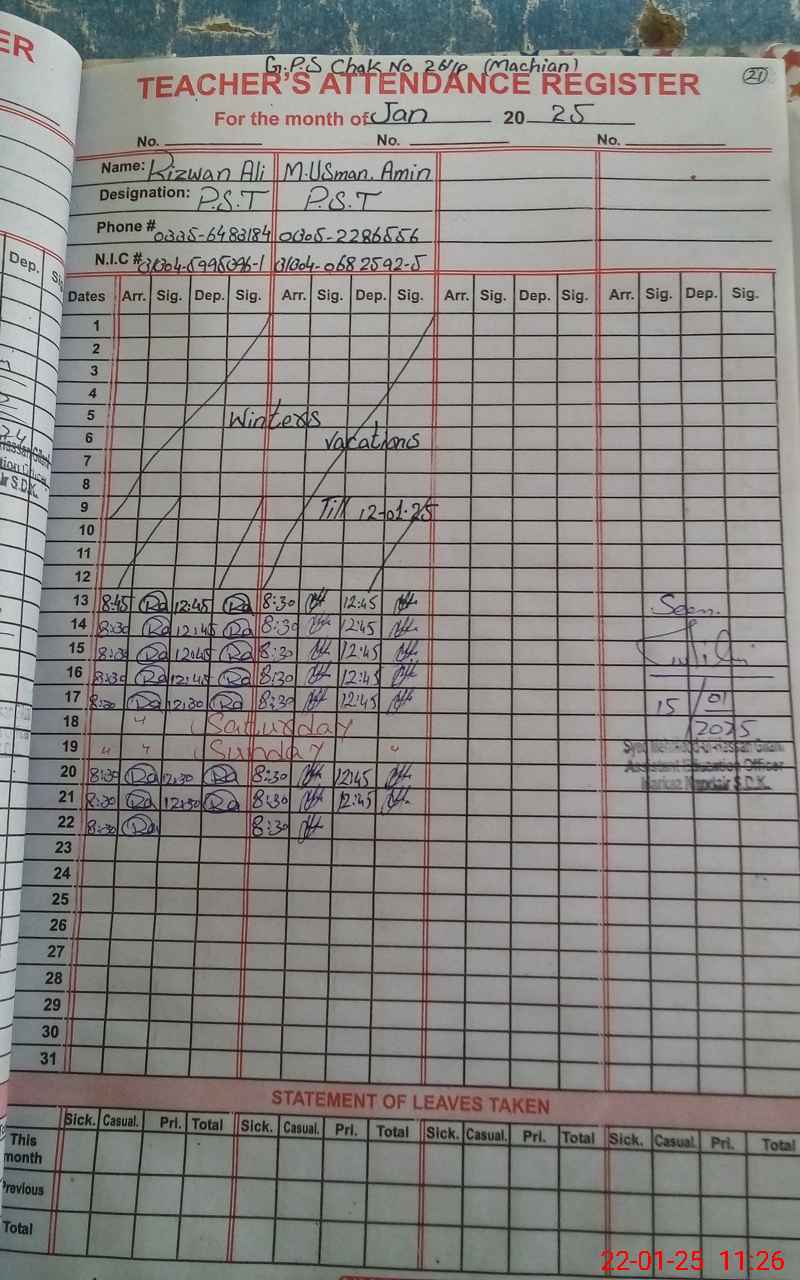 ER
G.P.S Chak No 26/P (Machian)
21
TEACHER'S ATTENDANCE REGISTER
For the month of Jan 20 25
No. No. No.
Name: Rizwan Ali M.USman. Amin
Designation: P.S.T P.S.T
Phone # 0305-2286556
N.I.C #
Dep. Sig
Dates Arr. Sig. Dep. Sig. Arr. Sig. Dep. Sig. Arr. Sig. Dep. Sig. Arr. Sig. Dep. Sig.
1
2
3
4
5 Winters
6 vacations
7
8
9 Till 12-01-25
10
11
12
13 8:45 Ra 12:45 Ra 8:30 12:45 Seen.
14 8:30 Ra 12:45 Ra 8:30 12:45
15 8:30 Ra 12:45 Ra 8:30 12:45
16 8:30 Ra 12:45 Ra 8:30 12:45
17 8:30 Ra 12:30 Ra 8:30 12:45 15/01
18 " Saturday /2025
19 " " Sunday "
20 8:30 Ra 12:30 Ra 8:30 12:45 Assistant Education Officer
21 8:30 Ra 12:30 Ra 8:30 12:45 S.D.K.
22 8:30 Ra 8:30
23
24
25
26
27
28
29
30
31
STATEMENT OF LEAVES TAKEN
Sick. Casual. Pri. Total Sick. Casual. Pri. Total Sick. Casual. Pri. Total Sick. Casual. Pri. Total
This month
Previous
Total
22-01-25 11:26